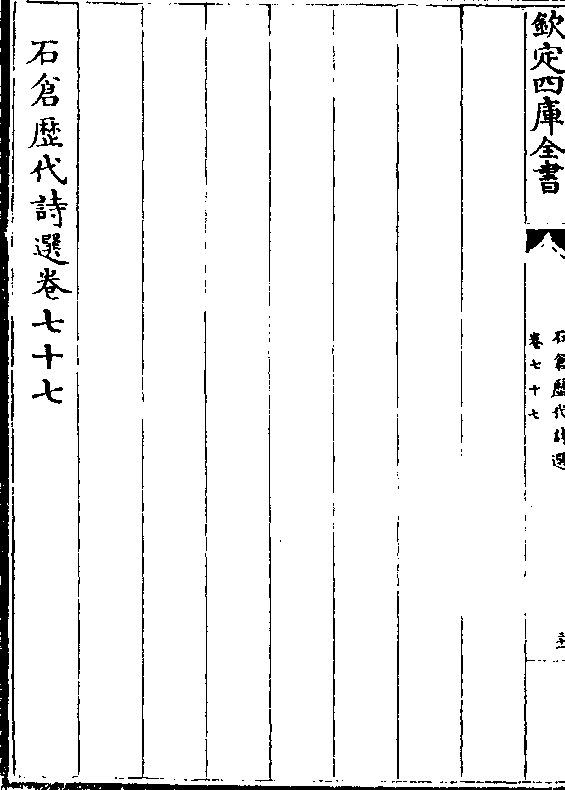 欽定四庫全書
石倉歷代詩選
卷七十七
石倉歷代詩選卷七十七